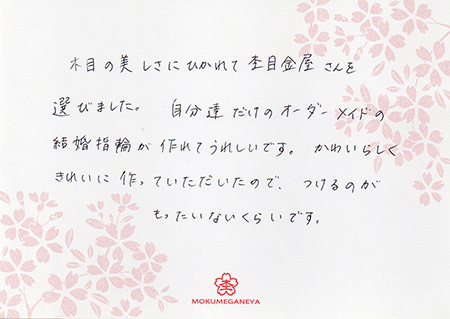 木目の美しさにひかれて杢目金屋さんを
選びました。 自分達だけのオーダーメイドの
結婚指輪が作れてうれしいです。 かわいらしく
きれいに作っていただいたので、つけるのが
もったいないくらいです。
杢
MOKUMEGANEYA